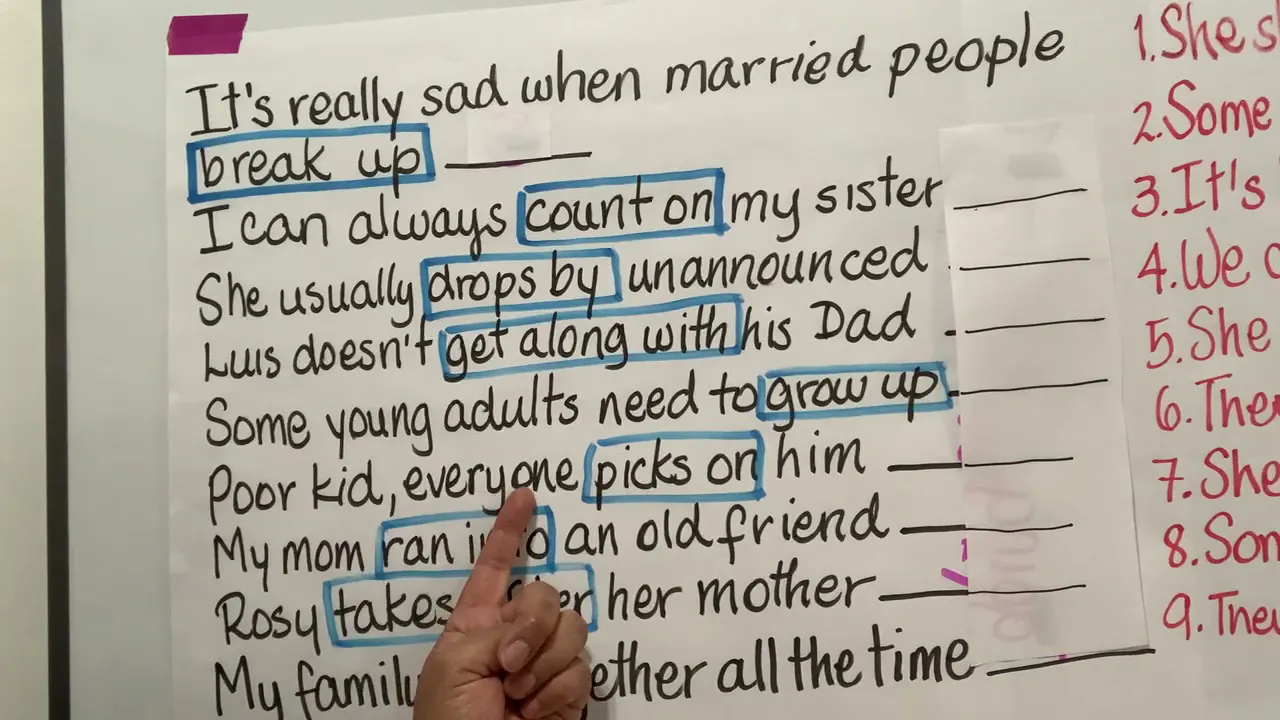 It's really sad when married people
break up
I can always count on my sister
She usually drops by unannounced
Luis doesn't get along with his Dad
Some young adults need to grow up
Poor kid, everyone picks on him
My mom ran into an old friend
Rosy takes her mother
My family all the time
1. She
2. Some
3. It's
4. We
5. She
6.
7. She
8.
9.